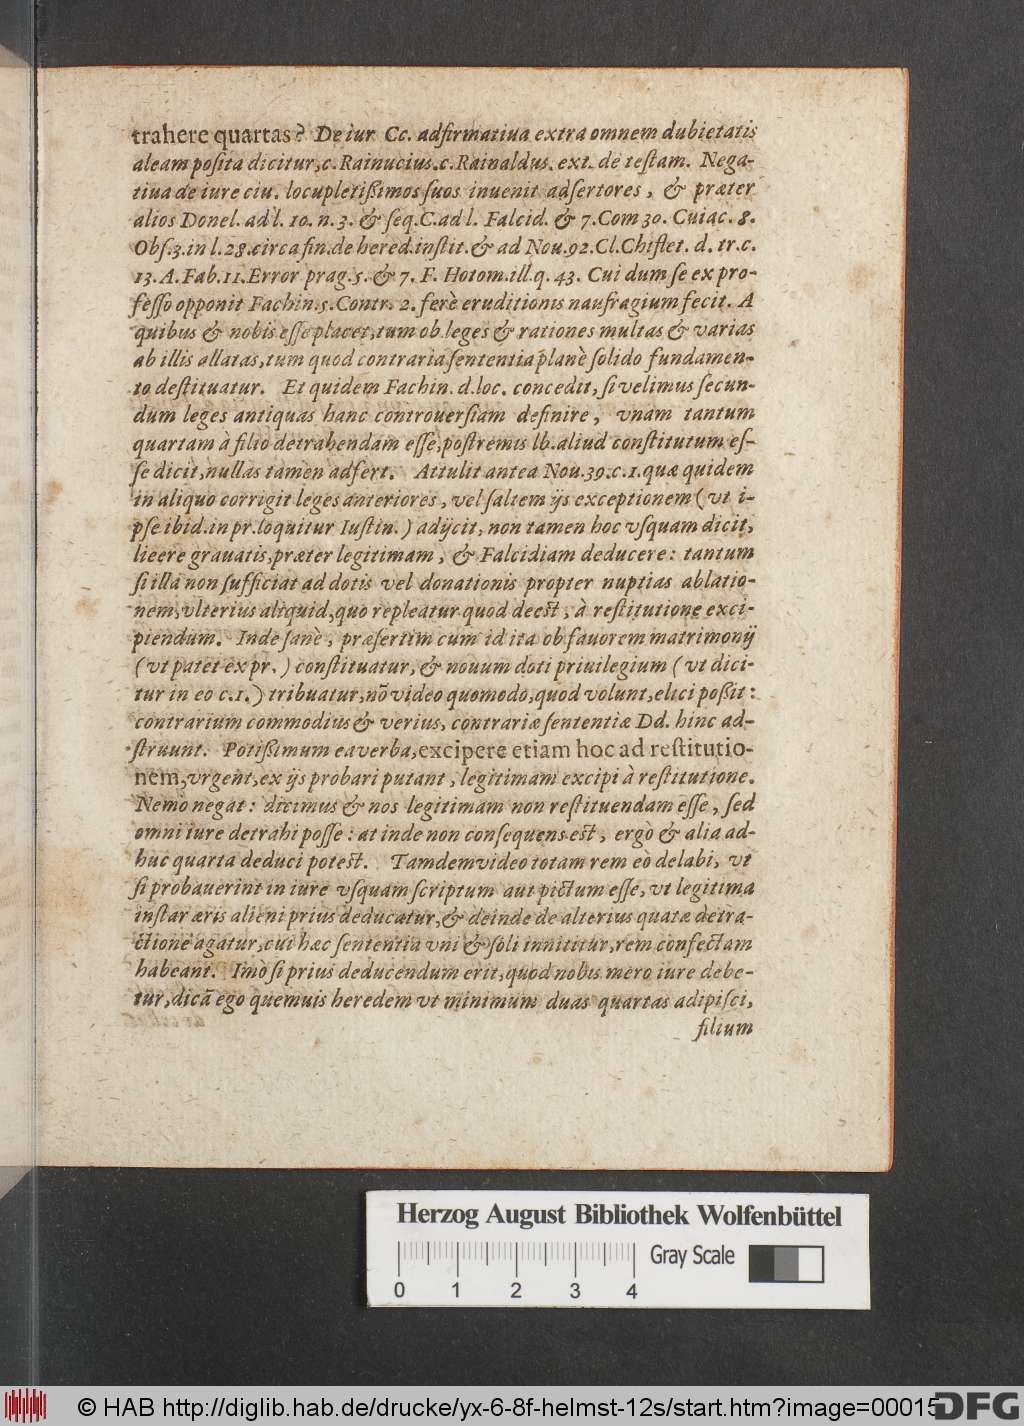 trahere quartas? De iur Cc. adfirmatiua extra omnem dubietatis
aleam poſita dicitur, c. Rainucius. c. Rainaldus. ext. de teſtam. Nega-
tiua de iure ciu. locupletißimos ſuos inuenit adſertores, & præter
alios Donel. ad l. 10. n. 3. & ſeq. C. ad l. Falcid. & 7. Com 30. Cuiac. 8.
Obſ. 3. in l. 28. circa fin. de hered. inſtit. & ad Nou. 92. Cl. Chiflet. d. tr. c.
13. A. Fab. 11. Error prag. 5. & 7. F. Hotom. ill. q. 43. Cui dum ſe ex pro-
feſſo opponit Fachin. 5. Contr. 2. ferè eruditionis naufragium fecit. A
quibus & nobis eſſe placet, tum ob leges & rationes multas & varias
ab illis allatas, tum quod contraria ſententia planè ſolido fundamen-
to deſtituatur. Et quidem Fachin. d. loc. concedit, ſi velimus ſecun-
dum leges antiquas hanc controuerſiam definire, vnam tantum
quartam à filio detrahendam eſſe, poſtremis lb. aliud conſtitutum eſ-
ſe dicit, nullas tamen adfert. Attulit antea Nou. 39. c. 1. quæ quidem
in aliquo corrigit leges anteriores, vel ſaltem ijs exceptionem (vt i-
pſe ibid. in pr. loquitur Iuſtin.) adijcit, non tamen hoc vſquam dicit,
licere grauatis, præter legitimam, & Falcidiam deducere: tantum
ſi illa non ſufficiat ad dotis vel donationis propter nuptias ablatio-
nem, vlterius aliquid, quo repleatur quod deeſt, à reſtitutione exci-
piendum. Inde ſanè, præſertim cum id ita ob fauorem matrimonij
(vt patet ex pr.) conſtituatur, & nouum doti priuilegium (vt dici-
tur in eo c. 1.) tribuatur, nō video quomodo, quod volunt, elici poßit:
contrarium commodius & verius, contrariæ ſententiæ Dd. hinc ad-
ſtruunt. Potißimum ea verba, excipere etiam hoc ad reſtitutio-
nem, vrgent, ex ijs probari putant, legitimam excipi à reſtitutione.
Nemo negat: dicimus & nos legitimam non reſtituendam eſſe, ſed
omni iure detrahi poſſe: at inde non conſequens eſt, ergò & alia ad-
huc quarta deduci poteſt. Tamdem video totam rem eò delabi, vt
ſi probauerint in iure vſquam ſcriptum aut pictum eſſe, vt legitima
inſtar æris alieni prius deducatur, & deinde de alterius quatæ detra-
ctione agatur, cui hæc ſententia vni & ſoli innititur, rem confectam
habeant. Imò ſi prius deducendum erit, quod nobis mero iure debe-
tur, dicā ego quemuis heredem vt minimum duas quartas adipiſci,
filium
Herzog August Bibliothek Wolfenbüttel
Gray Scale
0 1 2 3 4
© HAB http://diglib.hab.de/drucke/yx-6-8f-helmst-12s/start.htm?image=00015
DFG